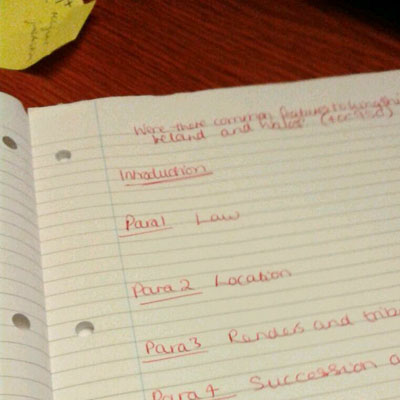 Were there common features to kingship
Ireland and Wales
Introduction
Para 1 Law
Para 2 Location
Para 3 Renders and trib
Para 4 Succession a